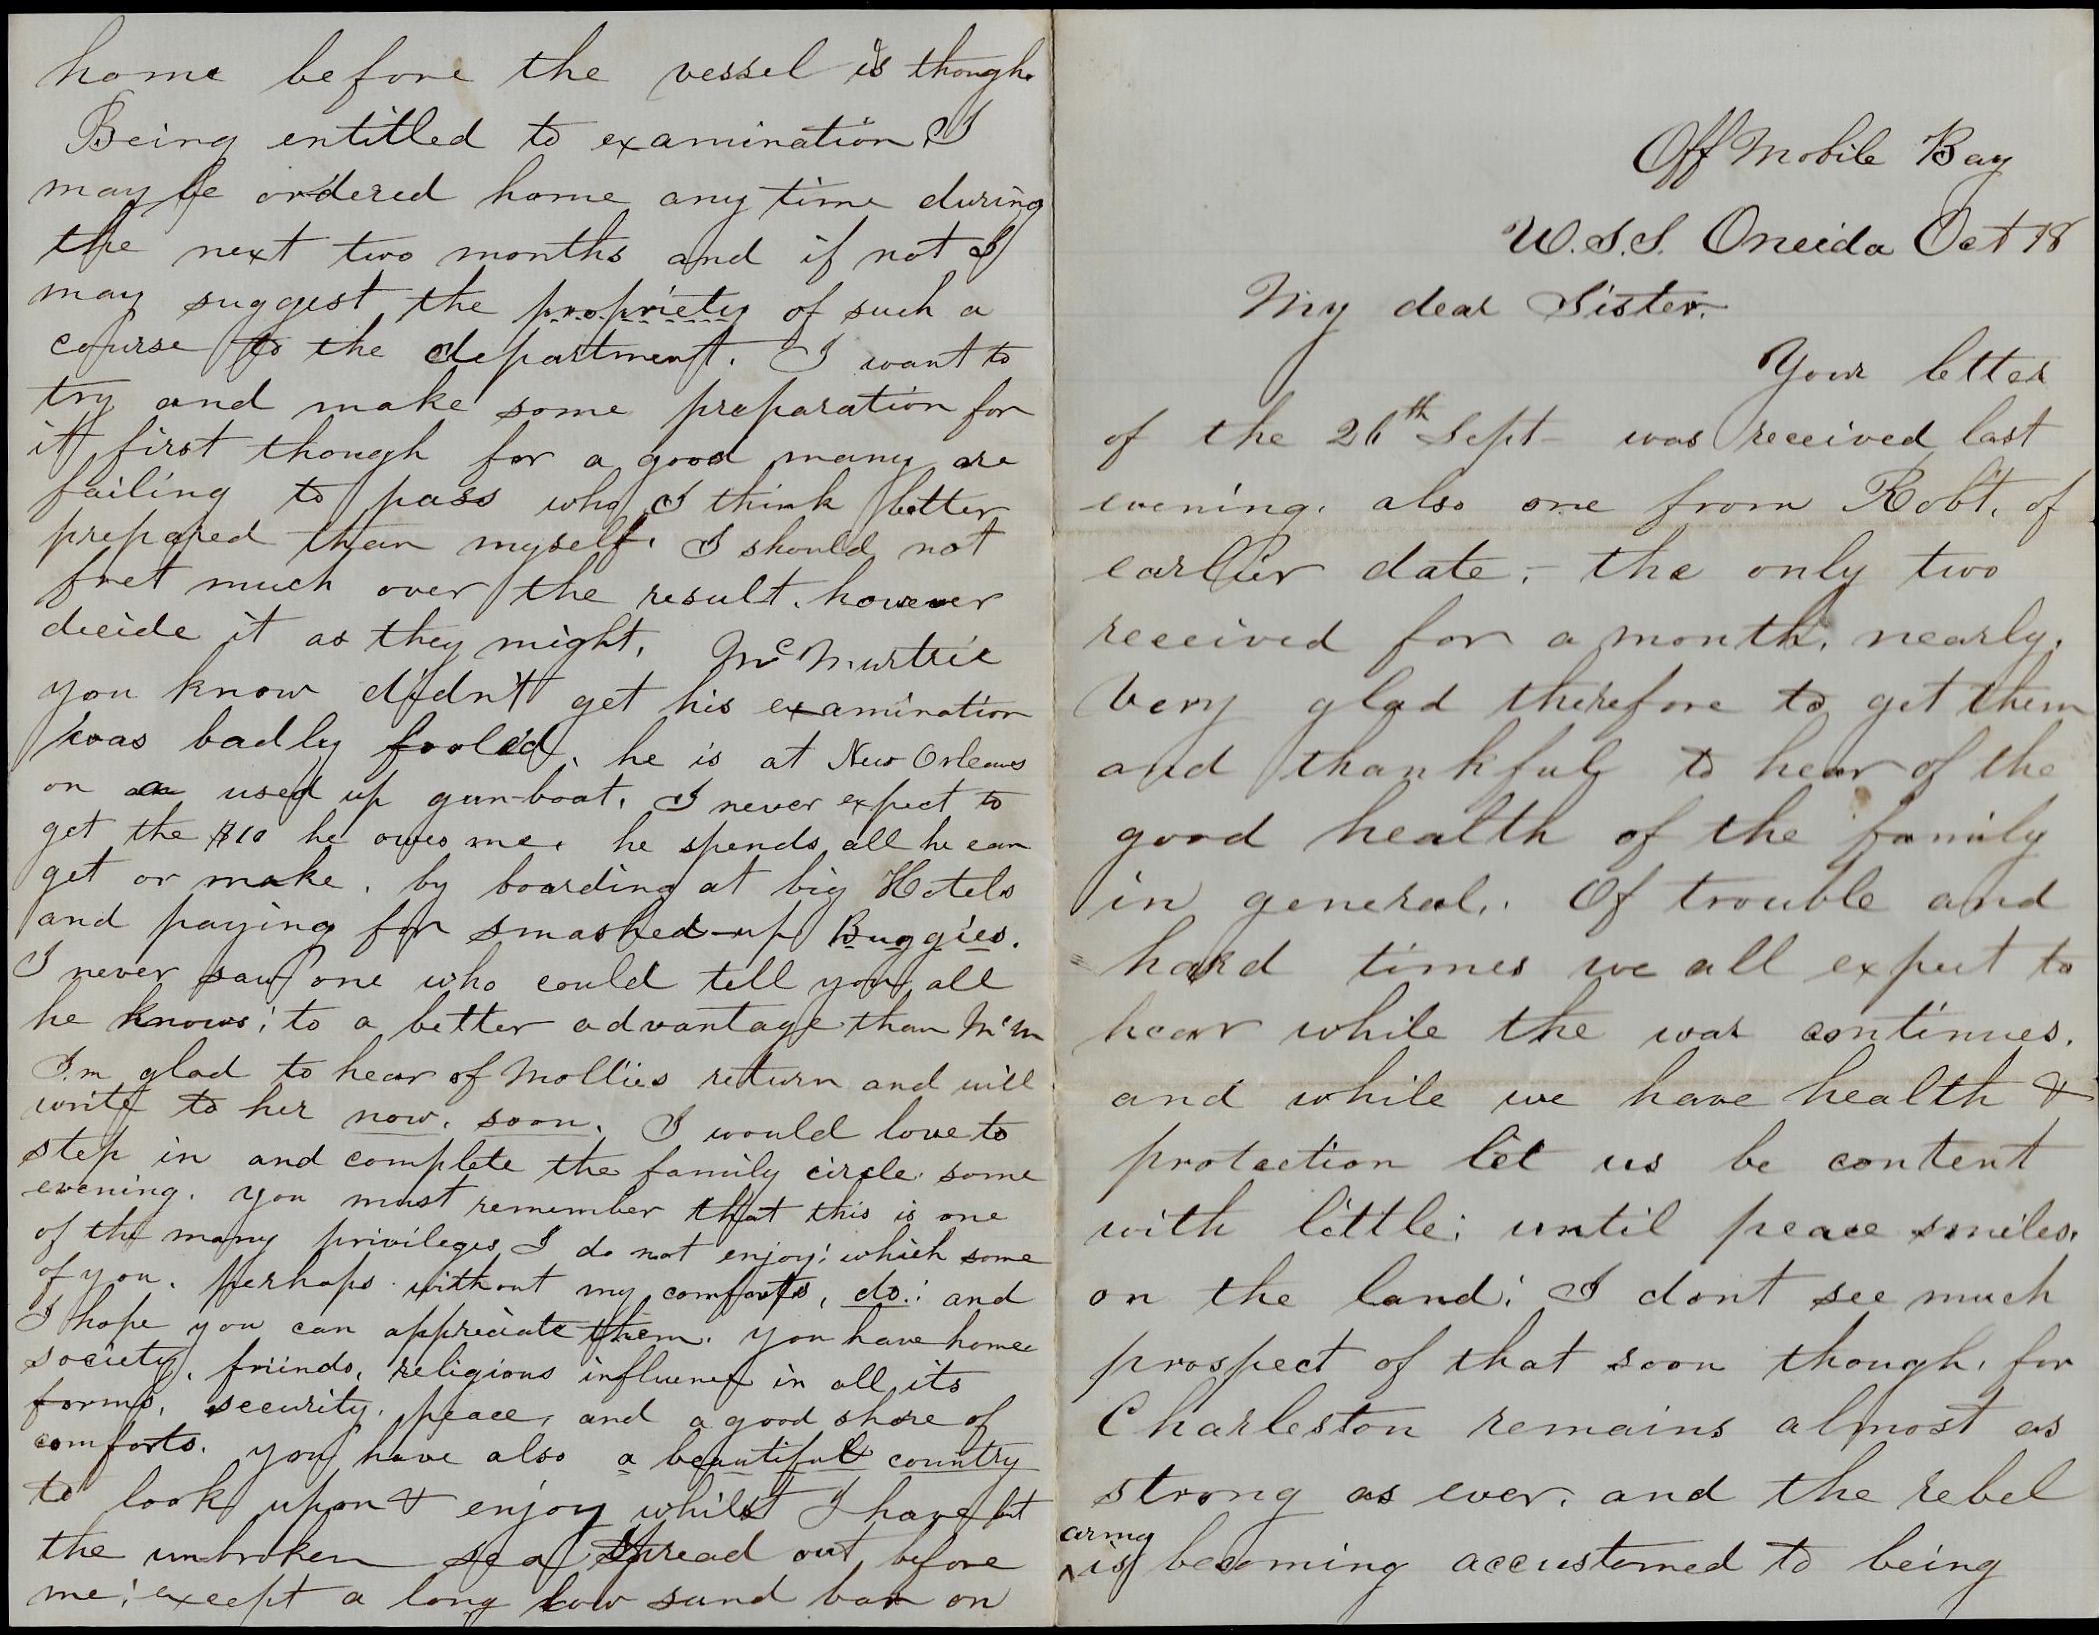 home before the vessel is though.
Being entitled to examination I
may be ordered home any time during
the next two months and if not I
may suggest the propriety of such a
course to the department. I want to
try and make some preparation for
it first though for a good many are
failing to pass who I think better
prepared than myself. I should not
fret much over the result. however
decide it as they might. McMurtrie
you know didn't get his examination
was badly fooled, he is at New Orleans
on a used up gun-boat. I never expect to
get the $10 he owes me. he spends all he can
get or make. by boarding at big Hotels
and paying for smashed-up Buggies.
I never saw one who could tell you all
he knows; to a better advantage than McM
I.m glad to hear of Mollies return and will
write to her now. soon. I would love to
step in and complete the family circle some
evening. you must remember that this is one
of the many privileges I do not enjoy; which some
of you. perhaps without my comforts, do.; and
I hope you can appreciate them. you have home
society, friends, religious influence in all its
forms, security, peace, and a good share of
comforts. you have also a beautiful country
to look upon & enjoy whilst I have but
the unbroken sea spread out before
me; except a long low sand bar on
Off Mobile Bay
U.S.S. Oneida Oct 18
My dear Sister.
Your letter
of the 26th Sept- was received last
evening. also one from Robt. of
earlier date; - the only two
received for a month. nearly.
Very glad therefore to get them
and thankful to hear of the
good health of the family
in general. Of trouble and
hard times we all expect to
hear while the war continues.
and while we have health &
protection let us be content
with little; until peace smiles.
on the land; I dont see much
prospect of that soon though. for
Charleston remains almost as
strong as ever. and the rebel
army
^is becoming accustomed to being